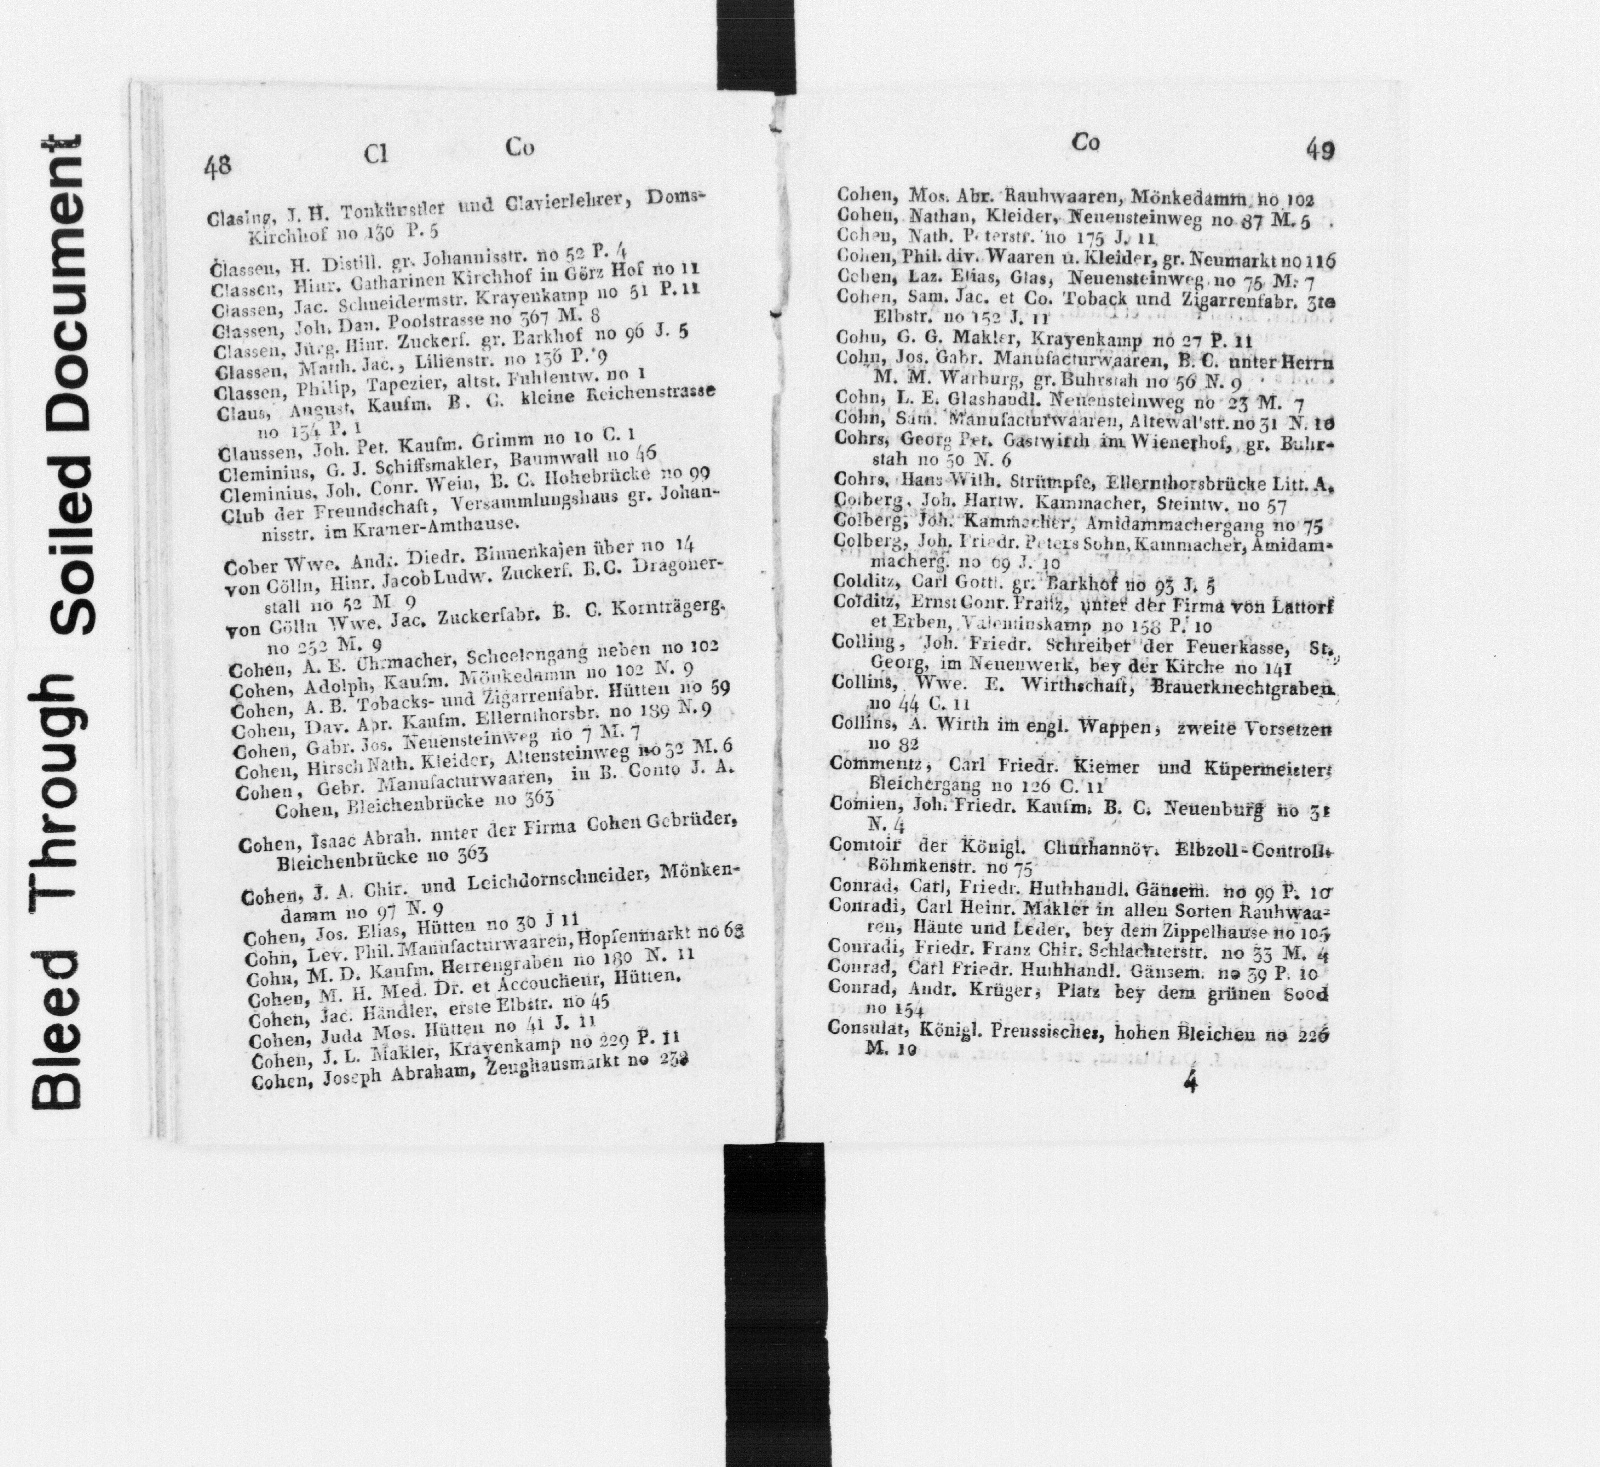 Bleed Through Soiled Document
48 Cl Co
Clasing, J. H. Tonkünstler und Clavierlehrer, Doms-
Kirchhof no 130 P. 5
Classen, H. Distill. gr. Johannisstr. no 52 P. 4
Classen, Hinr. Catharinen Kirchhof in Görz Hof no 11
Classen, Jac. Schneidermstr. Krayenkamp no 51 P. 11
Classen, Joh. Dan. Poolstrasse no 367 M. 8
Classen, Jürg. Hinr. Zuckerf. gr. Barkhof no 96 J. 5
Classen, Matth. Jac., Lilienstr. no 136 P. 9
Classen, Philip, Tapezier, altst. Fuhlentw. no 1
Claus, August, Kaufm. B. C. kleine Reichenstrasse
no 134 P. 1
Claussen, Joh. Pet. Kaufm. Grimm no 10 C. 1
Cleminius, G. J. Schiffsmakler, Baumwall no 46
Cleminius, Joh. Conr. Wein, B. C. Hohebrücke no 99
Club der Freundschaft, Versammlungshaus gr. Johan-
nisstr. im Kramer-Amthause.
Cober Wwe. Andr. Diedr. Binnenkajen über no 14
von Cölln, Hinr. Jacob Ludw. Zuckerf. B. C. Dragoner-
stall no 52 M 9
von Cölln Wwe. Jac. Zuckerfabr. B. C. Kornträgerg.
no 252 M. 9
Cohen, A. E. Uhrmacher, Scheelengang neben no 102
Cohen, Adolph, Kaufm. Mönkedamm no 102 N. 9
Cohen, A. B. Tobacks- und Zigarrenfabr. Hütten no 59
Cohen, Dav. Abr. Kaufm. Ellernthorsbr. no 189 N. 9
Cohen, Gabr. Jos. Neuensteinweg no 7 M. 7
Cohen, Hirsch Nath. Kleider, Altensteinweg no 32 M. 6
Cohen, Gebr. Manufacturwaaren, in B. Conto J. A.
Cohen, Bleichenbrücke no 363
Cohen, Isaac Abrah. unter der Firma Cohen Gebrüder,
Bleichenbrücke no 363
Cohen, J. A. Chir. und Leichdornschneider, Mönken-
damm no 97 N. 9
Cohen, Jos. Elias, Hütten no 30 J 11
Cohn, Lev. Phil. Manufacturwaaren, Hopfenmarkt no 68
Cohn, M. D. Kaufm. Herrengraben no 180 N. 11
Cohen, M. H. Med. Dr. et Accoucheur, Hütten.
Cohen, Jac. Händler, erste Elbstr. no 45
Cohen, Juda Mos. Hütten no 41 J. 11
Cohen, J. L. Makler, Krayenkamp no 229 P. 11
Cohen, Joseph Abraham, Zeughausmarkt no 238
Co 49
Cohen, Mos. Abr. Rauhwaaren, Mönkedamm no 102
Cohen, Nathan, Kleider, Neuensteinweg no 87 M. 5
Cohen, Nath. Peterstr. no 175 J. 11
Cohen, Phil. div. Waaren u. Kleider, gr. Neumarkt no 116
Cohen, Laz. Elias, Glas, Neuensteinweg no 75 M. 7
Cohen, Sam. Jac. et Co. Toback und Zigarrenfabr. 3te
Elbstr. no 152 J. 11
Cohn, G. G. Makler, Krayenkamp no 27 P. 11
Cohn, Jos. Gabr. Manufacturwaaren, B. C. unter Herrn
M. M. Warburg, gr. Buhrstah no 56 N. 9
Cohn, L. E. Glashandl. Neuensteinweg no 23 M. 7
Cohn, Sam. Manufacturwaaren, Altewallstr. no 31 N. 10
Cohrs, Georg Pet. Gastwirth im Wienerhof, gr. Buhr-
stah no 50 N. 6
Cohrs, Hans Wilh. Strümpfe, Ellernthorsbrücke Litt. A.
Colberg, Joh. Hartw. Kammacher, Steintw. no 57
Colberg, Joh. Kammacher, Amidammachergang no 75
Colberg, Joh. Friedr. Peters Sohn, Kammacher, Amidam-
macherg. no 69 J. 10
Colditz, Carl Gottl. gr. Barkhof no 93 J. 5
Colditz, Ernst Conr. Franz, unter der Firma von Lattorf
et Erben, Valentinskamp no 158 P. 10
Colling, Joh. Friedr. Schreiber der Feuerkasse, St.
Georg, im Neuenwerk, bey der Kirche no 141
Collins, Wwe. E. Wirthschaft, Brauerknechtgraben
no 44 C. 11
Collins, A. Wirth im engl. Wappen, zweite Vorsetzen
no 82
Commentz, Carl Friedr. Kiemer und Küpermeister,
Bleichergang no 126 C. 11
Comien, Joh. Friedr. Kaufm. B. C. Neuenburg no 31
N. 4
Comtoir der Königl. Churhannöv. Elbzoll-Controll,
Böhmkenstr. no 75
Conrad, Carl, Friedr. Huthhandl. Gänsem. no 99 P. 10
Conradi, Carl Heinr. Makler in allen Sorten Rauhwaa-
ren, Häute und Leder, bey dem Zippelhause no 105
Conradi, Friedr. Franz Chir. Schlachterstr. no 33 M. 4
Conrad, Carl Friedr. Huthhandl. Gänsem. no 39 P. 10
Conrad, Andr. Krüger, Platz bey dem grünen Sood
no 154
Consulat, Königl. Preussisches, hohen Bleichen no 226
M. 10
4